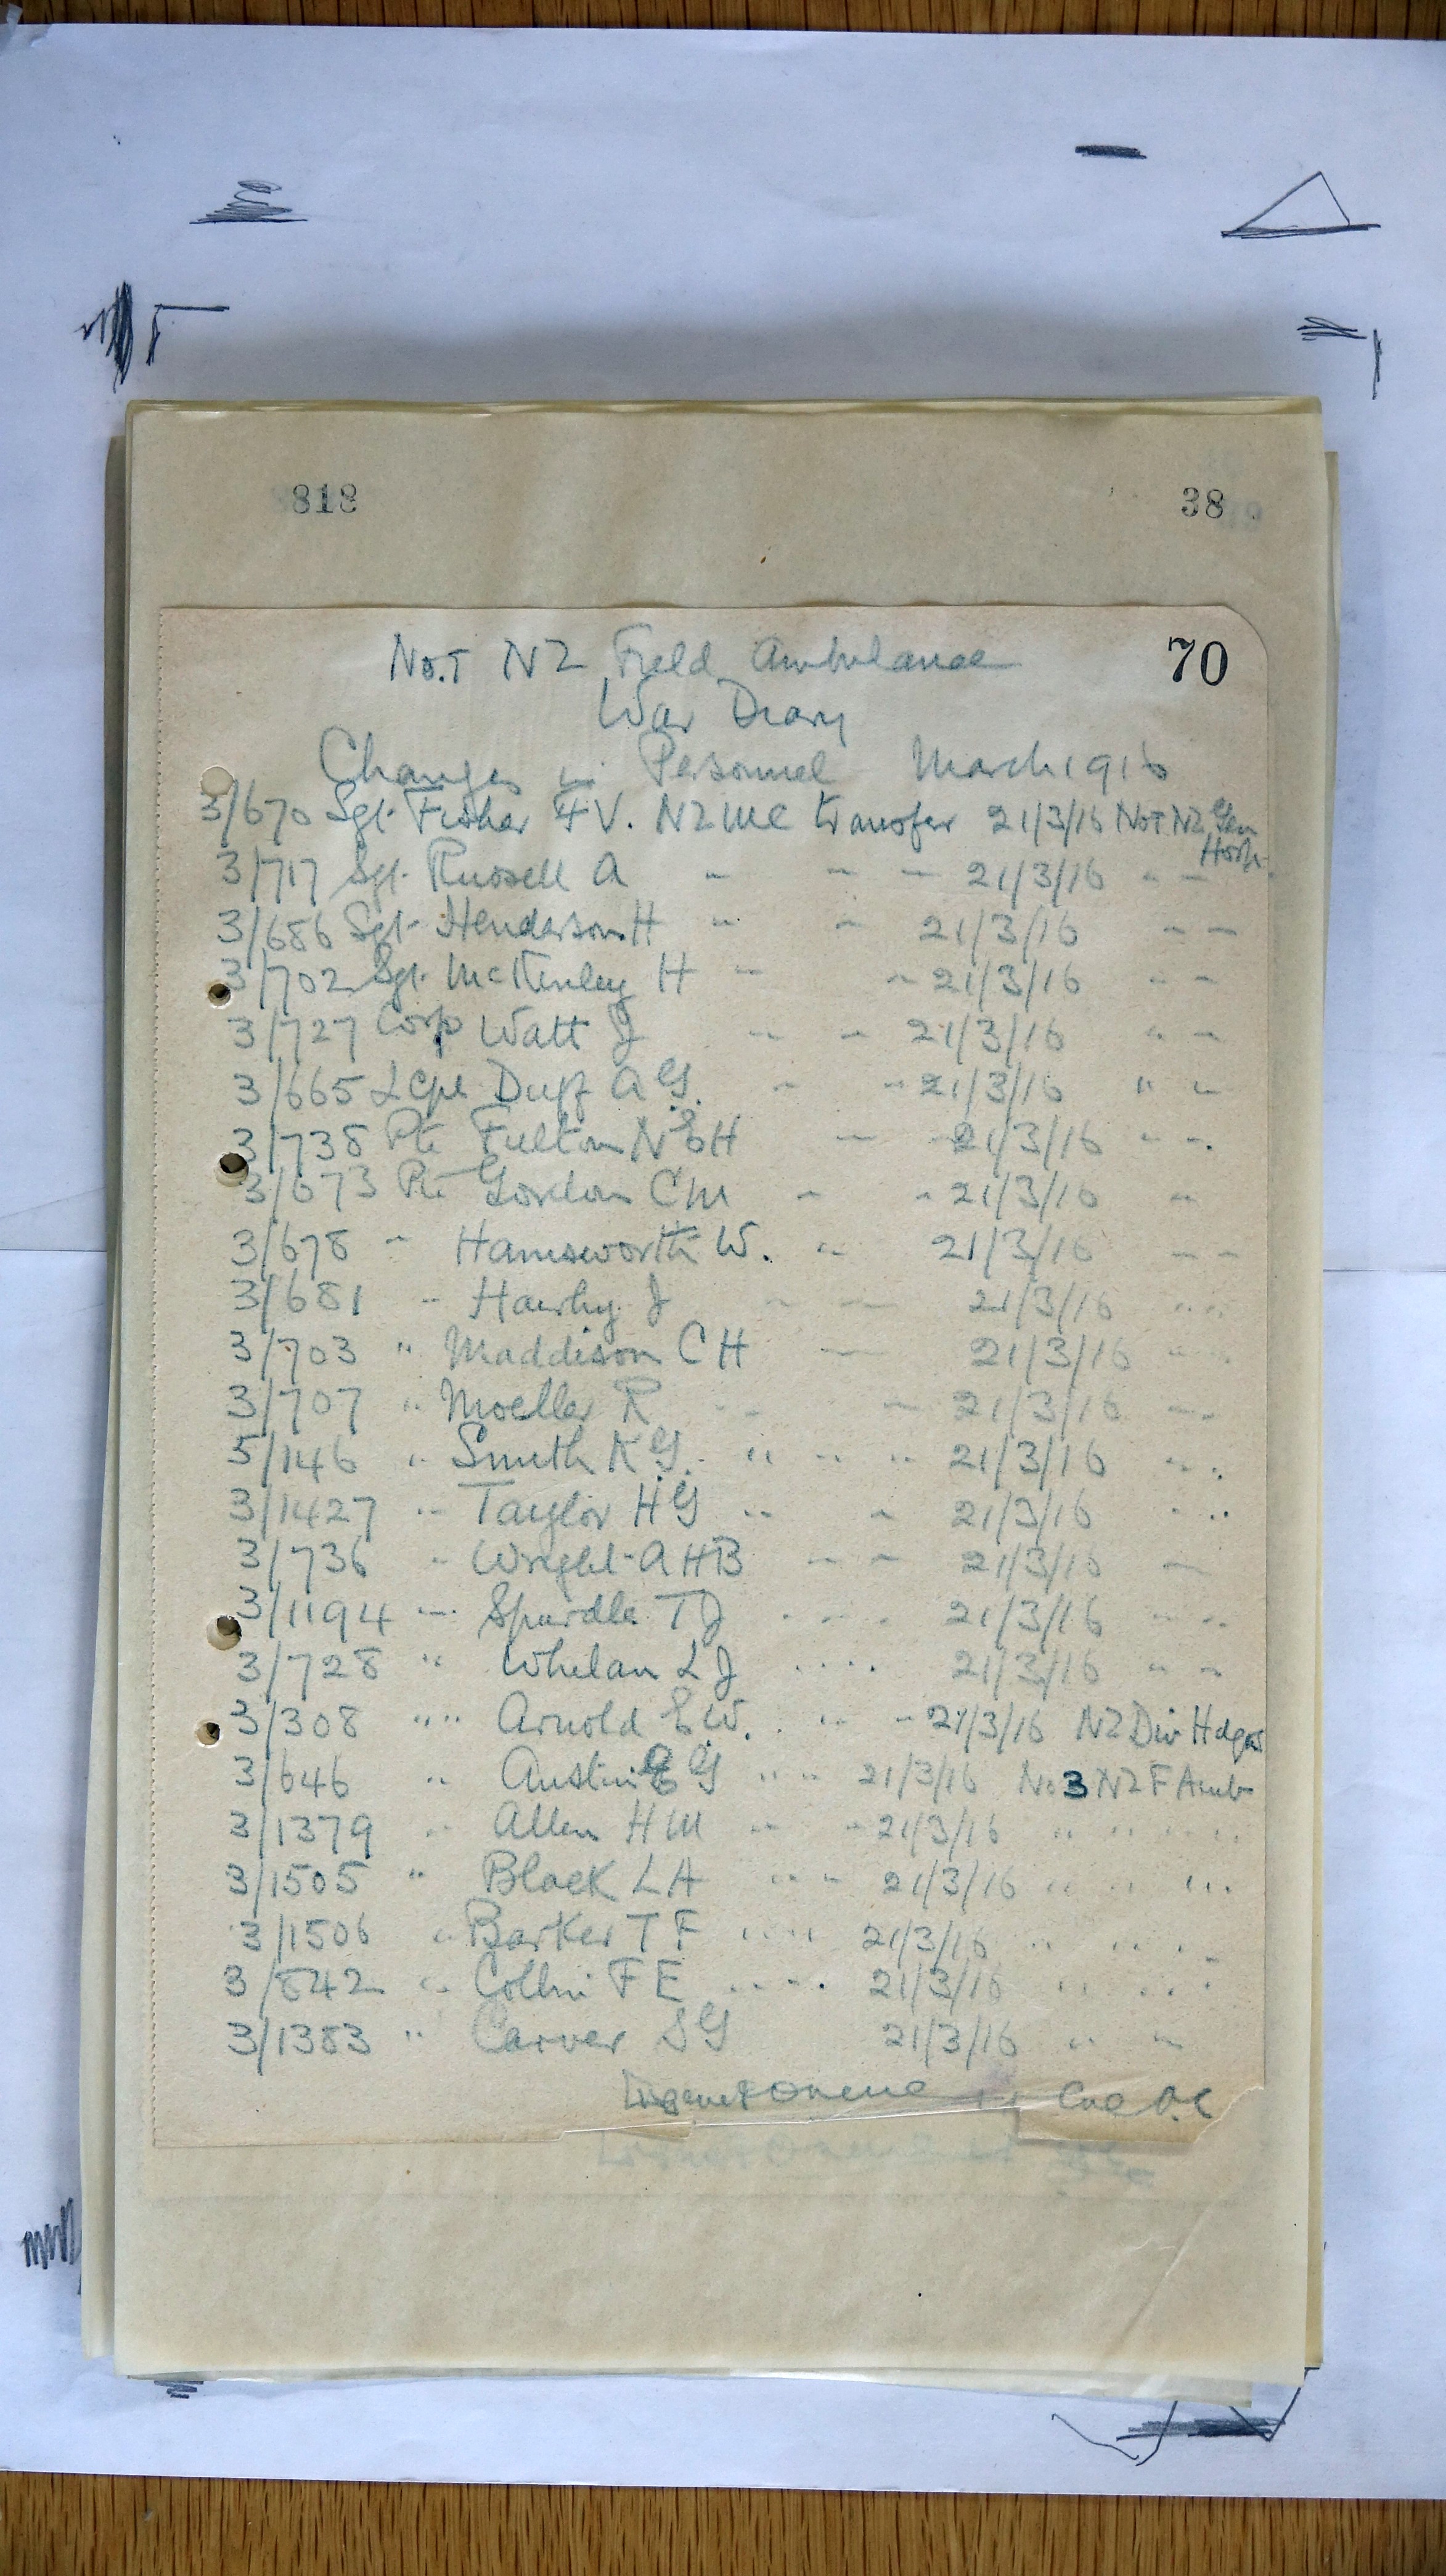 818 38
70
No. 1 NZ Field Ambulance
War Diary
Changes in Personnel March 1916
3/670 Sgt. Fisher F V. NZMC transfer 21/3/16 No 1 NZ Gen Hosp.
3/717 Sgt. Russell A " " " 21/3/16 " "
3/686 Sgt. Henderson H " " 21/3/16 " "
3/702 Sgt. McKinley H " " 21/3/16 " "
3/727 Corp Watt J " " 21/3/16 " "
3/665 L Cpl Duff A G. " " 21/3/16 " "
3/738 Pte Fulton N E H " " 21/3/16 " "
3/673 Pte Gordon C M " " 21/3/16 "
3/678 " Hamsworth W. " 21/3/16 " "
3/681 " J " " 21/3/16 " "
3/703 " Maddison C H " 21/3/16 " "
3/707 " Moeller R " " 21/3/16 " "
5/146 " Smith K G. " " " 21/3/16 " "
3/1427 " Taylor H G " " 21/3/16 " "
3/736 " Wright A H B " " 21/3/16 "
3/1194 " Spurdle T J " " 21/3/16 " "
3/728 " Whelan L J " " 21/3/16 " "
3/308 " " Arnold E W. " " 21/3/16 NZ Div Hdqrs
3/646 " Austin G " " 21/3/16 No 3 NZ F Amb
3/1379 " Allen H M " " 21/3/16 " " " "
3/1505 " Black L A " " 21/3/16 " " " "
3/1506 " Barker T F " " 21/3/16 " " " "
3/842 " Collin F E " " 21/3/16 " " " "
3/1383 " Carver S G 21/3/16 " "